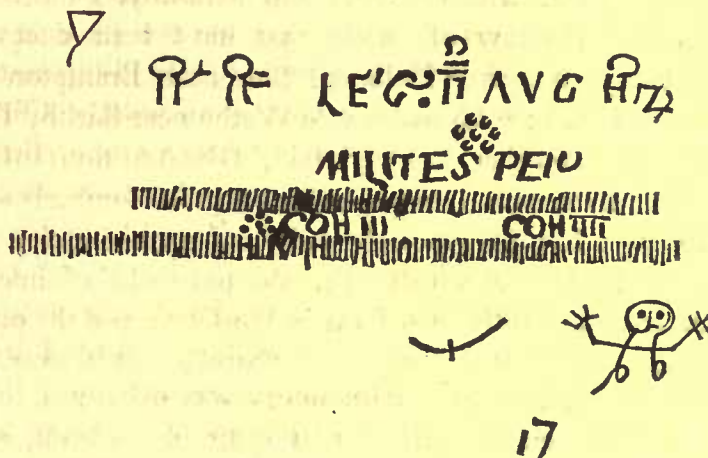 LEG. II AVG
MILITES PEIV
COH III COH IIII
17